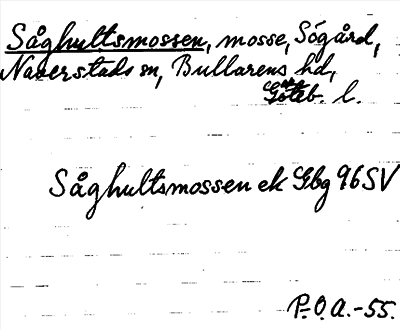 Såghultsmossen, mosse, Sögård,
Naverstads sn, Bullarens hd,
Göteb. l.
Såghultsmossen ek Gbg 96 SV
P.O.A.-55.